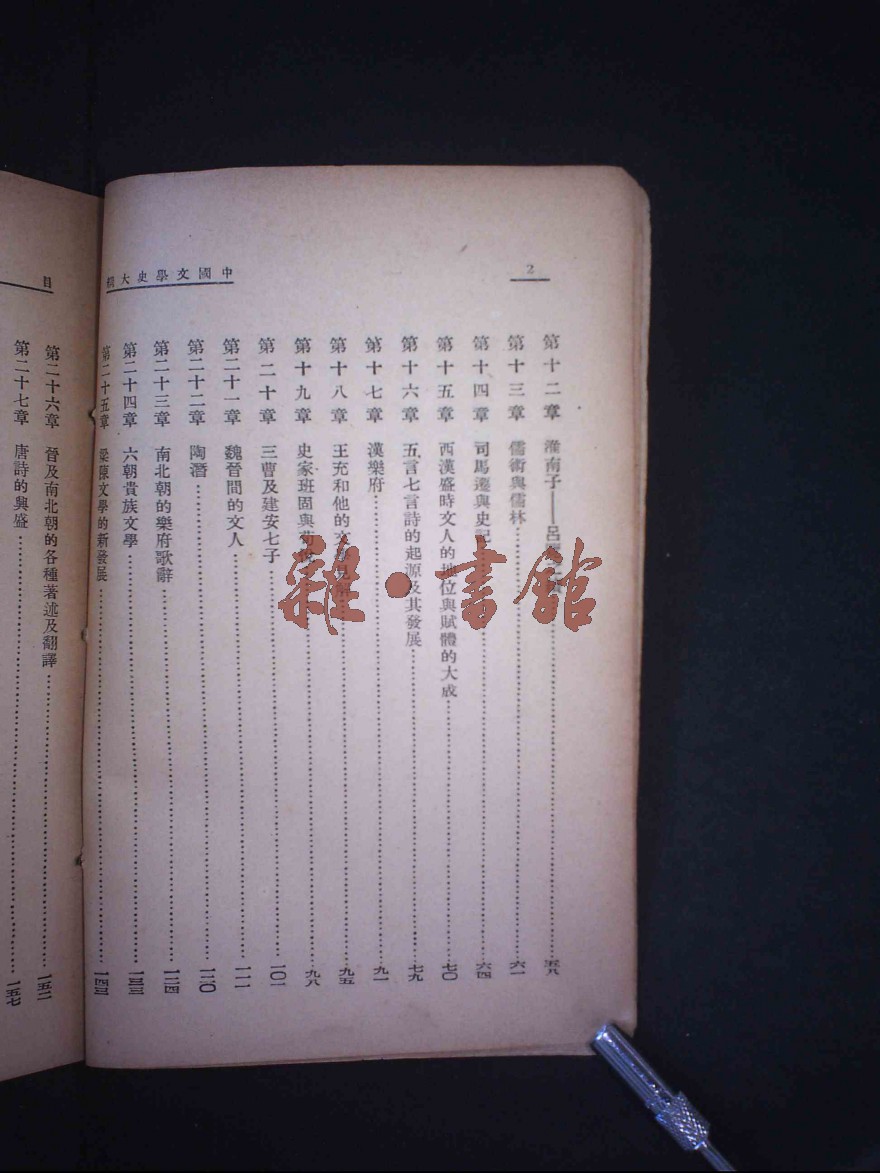 中國文學史大綱
2
第十二章 淮南子——呂
第十三章 儒術與儒林 六一
第十四章 司馬遷與史記 六四
第十五章 西漢盛時文人的地位與賦體的大成 七〇
第十六章 五言七言詩的起源及其發展 七九
第十七章 漢樂府 九一
第十八章 王充和他的文學見解 九五
第十九章 史家班固與荀悅 九八
第二十章 三曹及建安七子 一〇一
第二十一章 魏晉間的文人 一一一
第二十二章 陶潛 一二〇
第二十三章 南北朝的樂府歌辭 一二四
第二十四章 六朝貴族文學 一三三
第二十五章 梁陳文學的新發展 一四三
目
第二十六章 晉及南北朝的各種著述及翻譯 一五二
第二十七章 唐詩的興盛 一五七
雜·書館